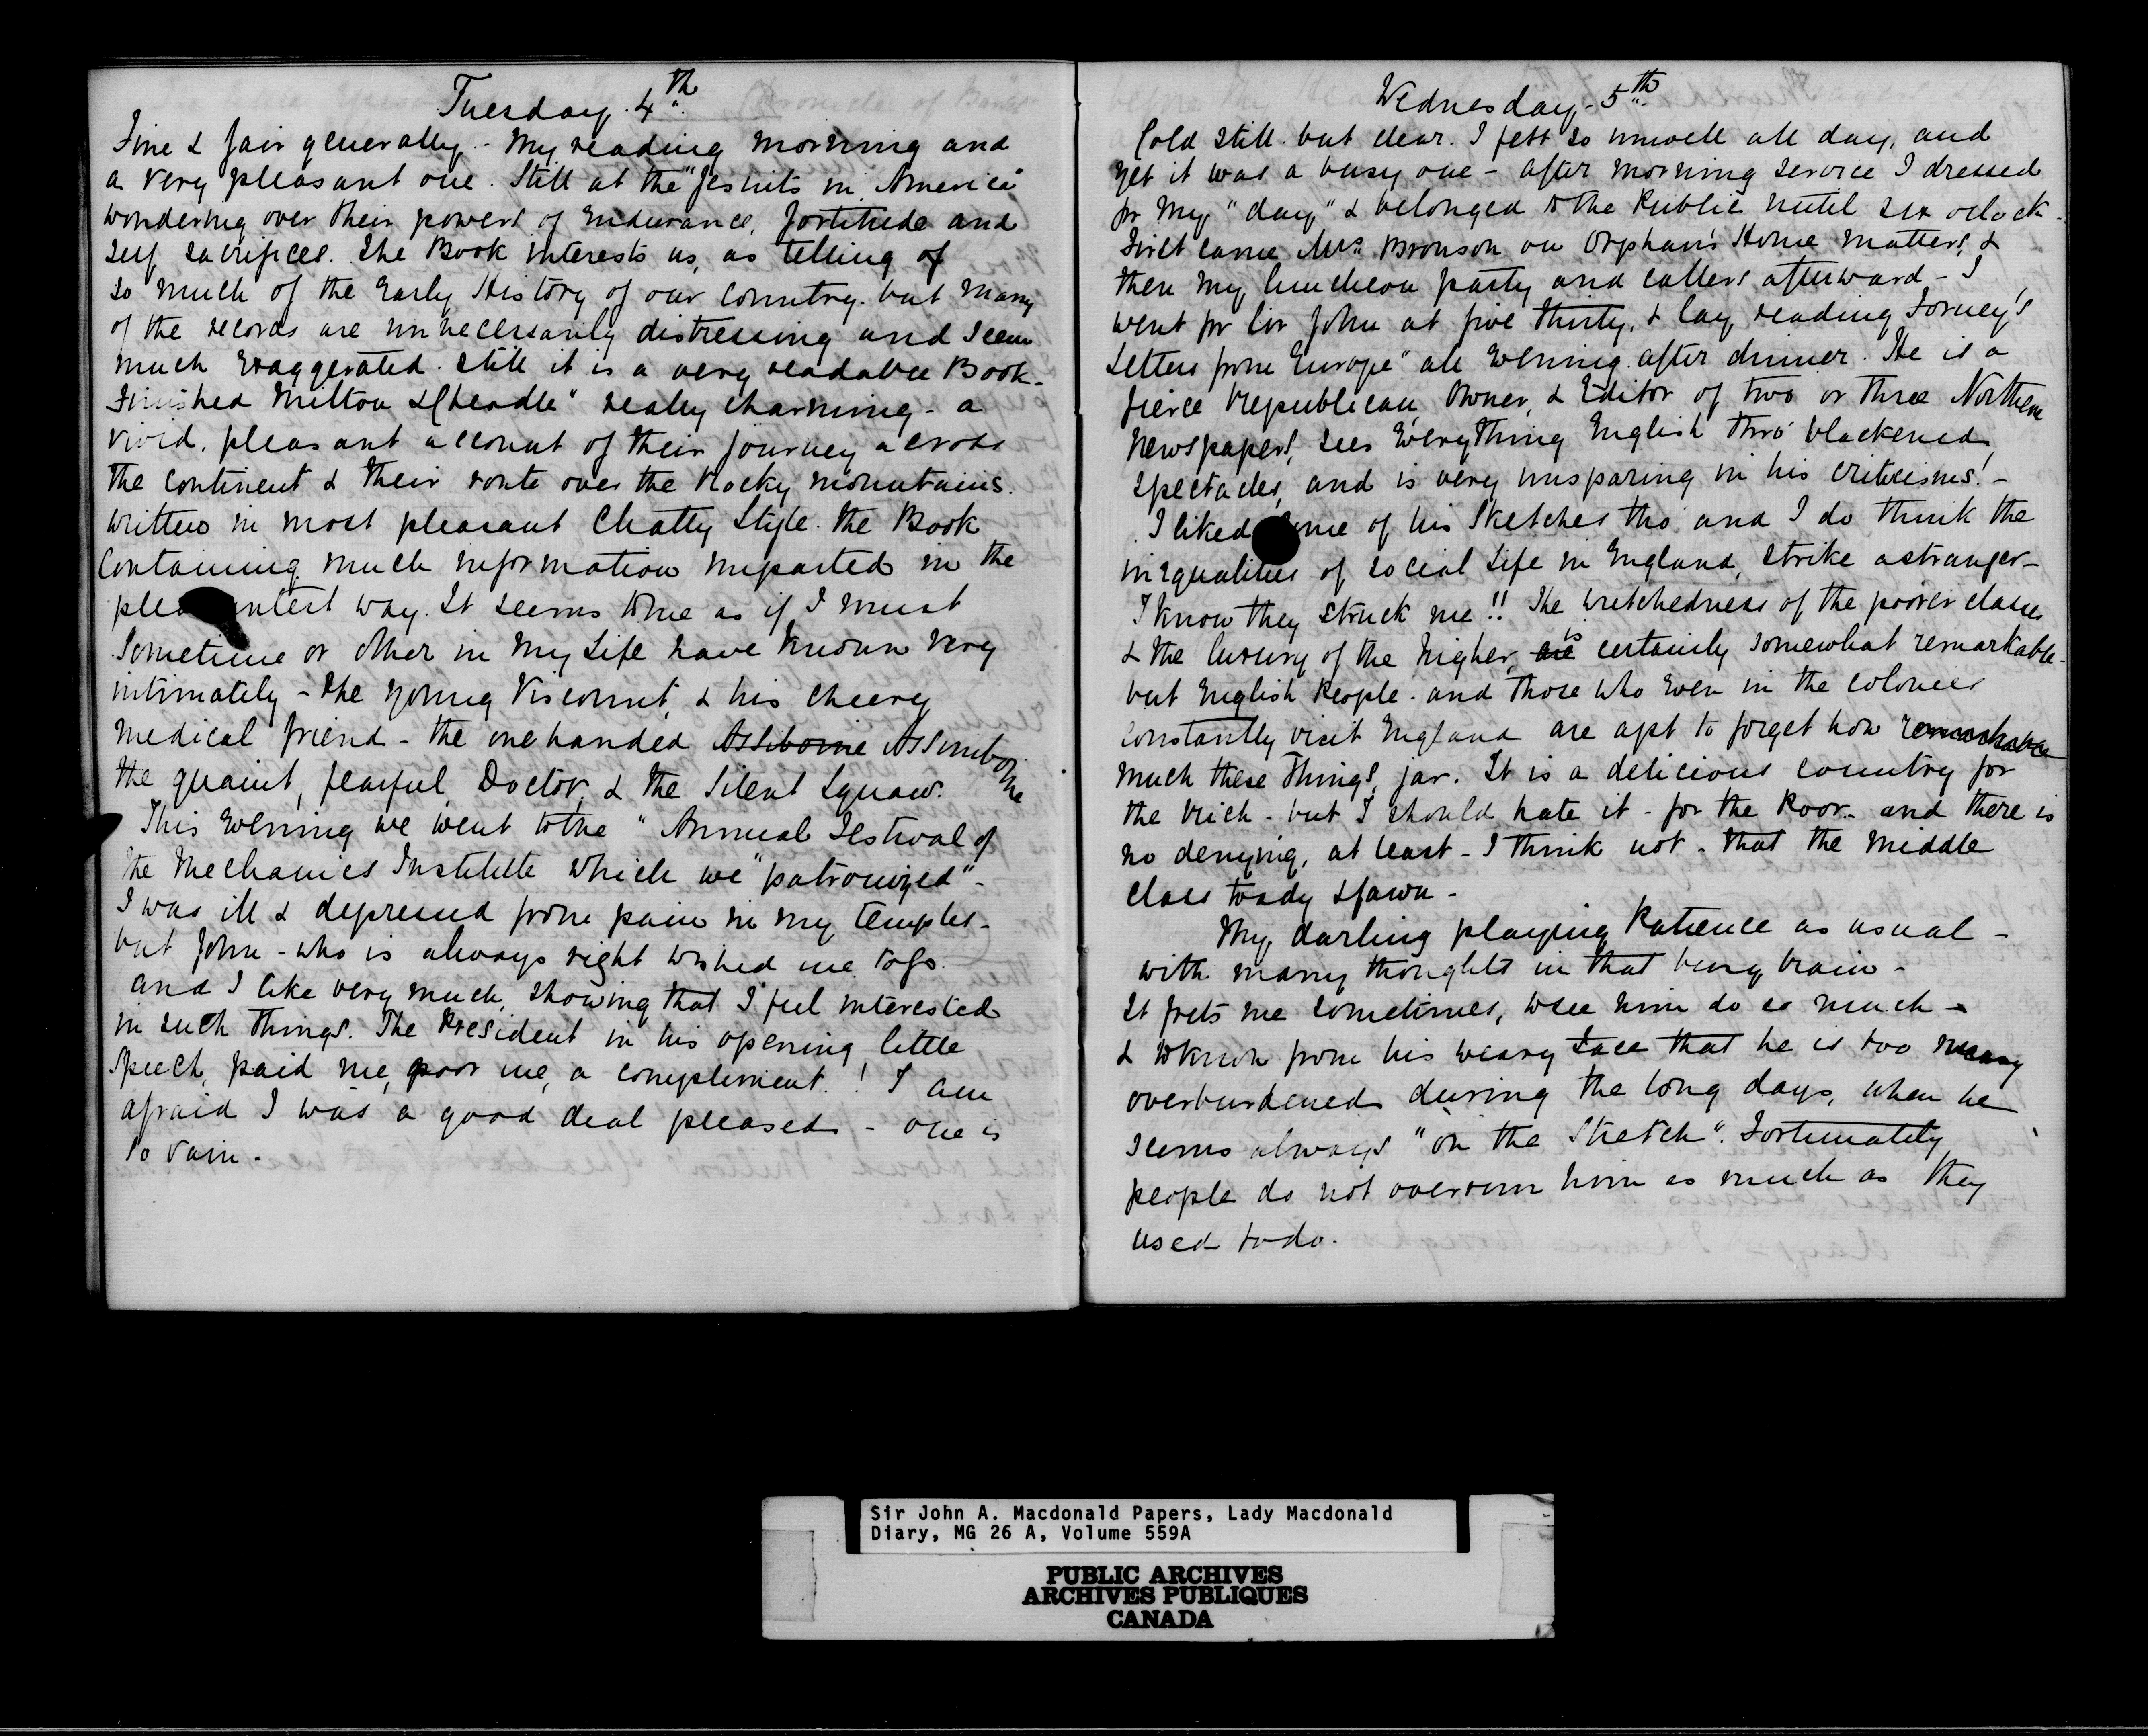 Tuesday. 4th.
Fine & fair generally - my reading morning and
a very pleasant one. Still at the "Jesuits in America"
wondering over their powers of Endurance, fortitude and
self sacrifices. The Book interests us, as telling of
so much of the Early History of our Country. but many
of the records are unnecessarily distressing and seem
much exaggerated. still it is a very readable Book -
Finished Milton & Cheadle" really charming - a
vivid, pleasant account of their journey across
the Continent & their route over the Rocky mountains.
written in most pleasant Chatty Style. the Book
Containing much information imparted in the
pleasantest way. It seems to me as if I must
Sometime or other in my Life have known very
intimately - the young Viscount, & his cheery
medical friend - the one handed Assiboine Assiniboine
the quaint, fearful Doctor, & the Silent Squaw.
This Evening we went to the "Annual Festival of
the Mechanics Institute which we "patronized" -
I was ill & depressed from pain in my temples -
but John - who is always right wished me to go.
and I like very much, showing that I feel interested
in such things. The President in his opening little
speech, paid me, poor me, a compliment.! I am
afraid I was a good deal pleased - one is
so vain -
Wednesday - 5th.
Cold still. but clear. I felt so unwell all day, and
yet it was a busy one - after morning service I dressed
for my "day" & belonged to the Public until six oclock -
First came Mrs. Bronson on Orphan's Home matters, &
then my luncheon party and callers afterward - I
went for Sir John at five thirty, & lay reading Forney's
Letters from Europe" all Evening after dinner. He is a
fierce Republican, Owner, & Editor of two or three Northern
Newspapers, sees Everything English thro' blackened
spectacles, and is very unsparing in his criticisms! -
I liked some of his Sketches tho' and I do think the
inequalities of social Life in England, strike a stranger -
I know they struck me!! The wretchedness of the poorer classes
& the luxury of the higher, are is certainly somewhat remarkable -
but English People. and those who Even in the Colonies
constantly visit England are apt to forget how remarkable
much these things, jar. It is a delicious country for
the Rich - but I should hate it - for the Poor - and there is
no denying, at least - I think not - that the middle
class toady & fawn -
My darling playing Patience as usual -
with many thoughts in that busy brain -
It frets me sometimes, to see him do so much -
& to know from his weary face that he is too weary
overburdened during the long days, when he
seems always "on the Stretch". Fortunately
people do not overrun him as much as they
used to do.
Sir John A. Macdonald Papers, Lady Macdonald
Diary, MG 26 A, Volume 559A
PUBLIC ARCHIVES
ARCHIVES PUBLIQUES
CANADA